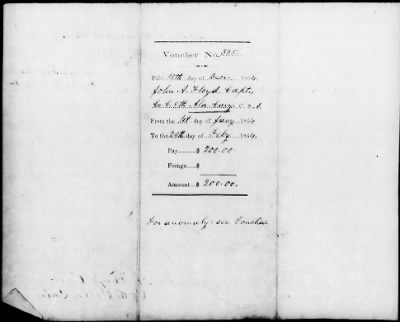 Voucher No. 335
Paid 18th day of 1864
John A. Floyd, Capt,
Co. 8th Ala Cavy C. S. A.
From the 1st day of Jany 1864
To the 29th day of Feby 1864
Pay......$ 200.00
Forage....$
Amount...$ 200.00.
For anomaly see Voucher